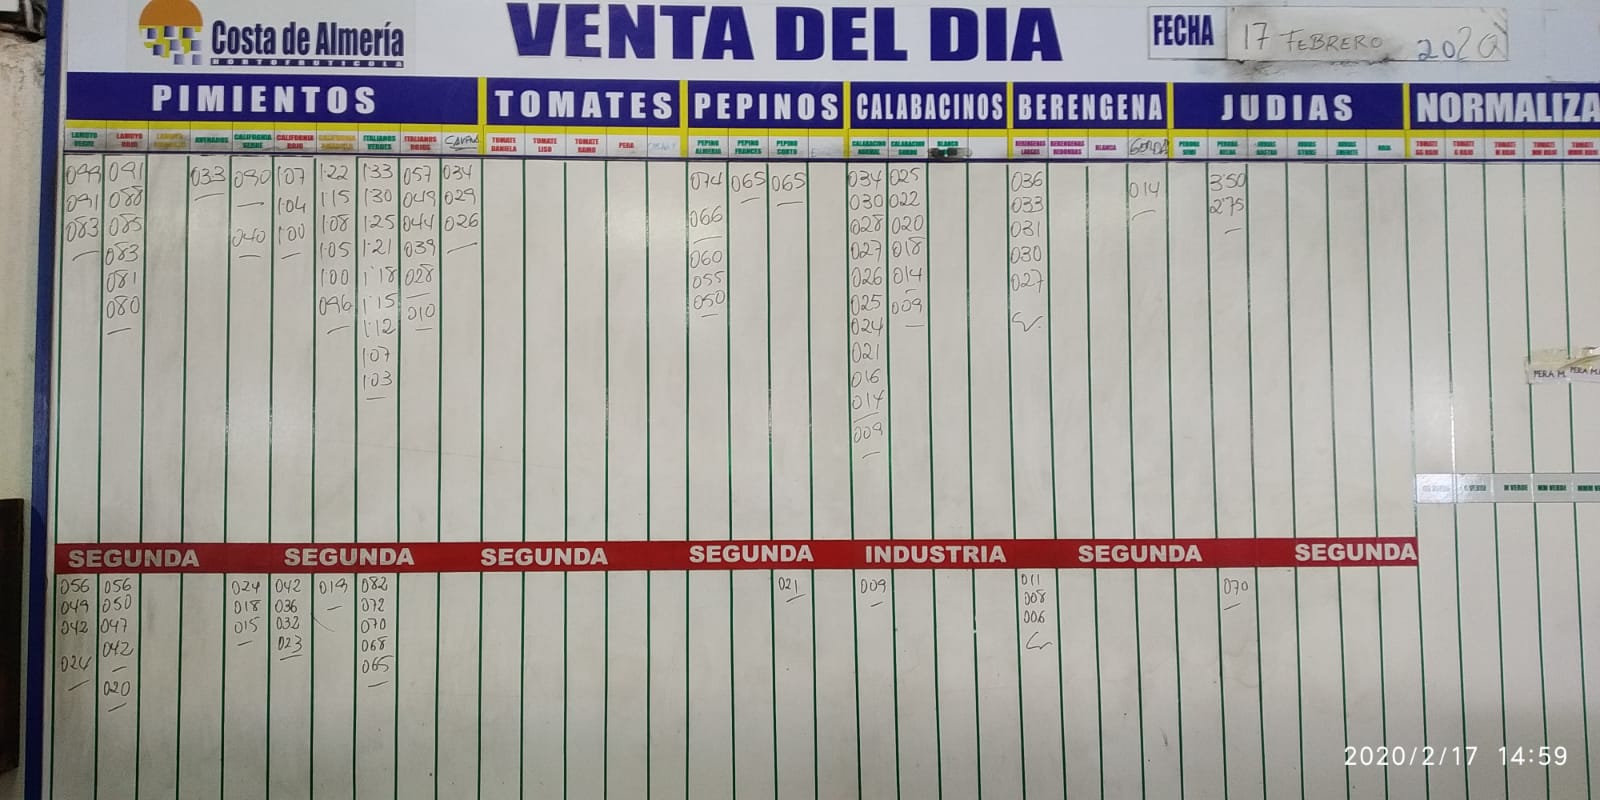 Costa de Almería
HORTOFRUTICOLA
VENTA DEL DIA
FECHA 17 FEBRERO 2020
PIMIENTOS TOMATES PEPINOS CALABACINOS BERENGENA JUDIAS NORMALIZA
LAMUYO VERDE LAMUYO ROJO CALIFORNIA VERDE CALIFORNIA ROJO ITALIANOS VERDES ITALIANOS ROJOS TOMATE DANIELA TOMATE LISO TOMATE RAMO PERA PEPINO ALMERIA PEPINO FRANCES PEPINO CORTO CALABACINO CALABACINO GORDO BLANCO BERENGENAS LARGAS BERENGENAS REDONDAS BLANCA GORDA PERONA ROJA
099 091 033 090 107 122 133 057 034 074 065 065 034 025 036 014 3'50
091 088 104 115 130 049 029 066 030 022 033 2'75
083 085 040 100 108 125 044 026 060 028 020 031
083 105 121 039 055 027 018 030
081 100 1'18 028 050 026 014 027
080 096 1'15 010 025 009
112 024
107 021
103 016
014
009
PERA M. PERA M
M VERDE MM VERDE
SEGUNDA SEGUNDA SEGUNDA SEGUNDA INDUSTRIA SEGUNDA SEGUNDA
056 056 024 042 019 082 021 009 011 070
049 050 018 036 072 008
042 047 015 032 070 006
024 042 023 068
020 065
2020/2/17 14:59